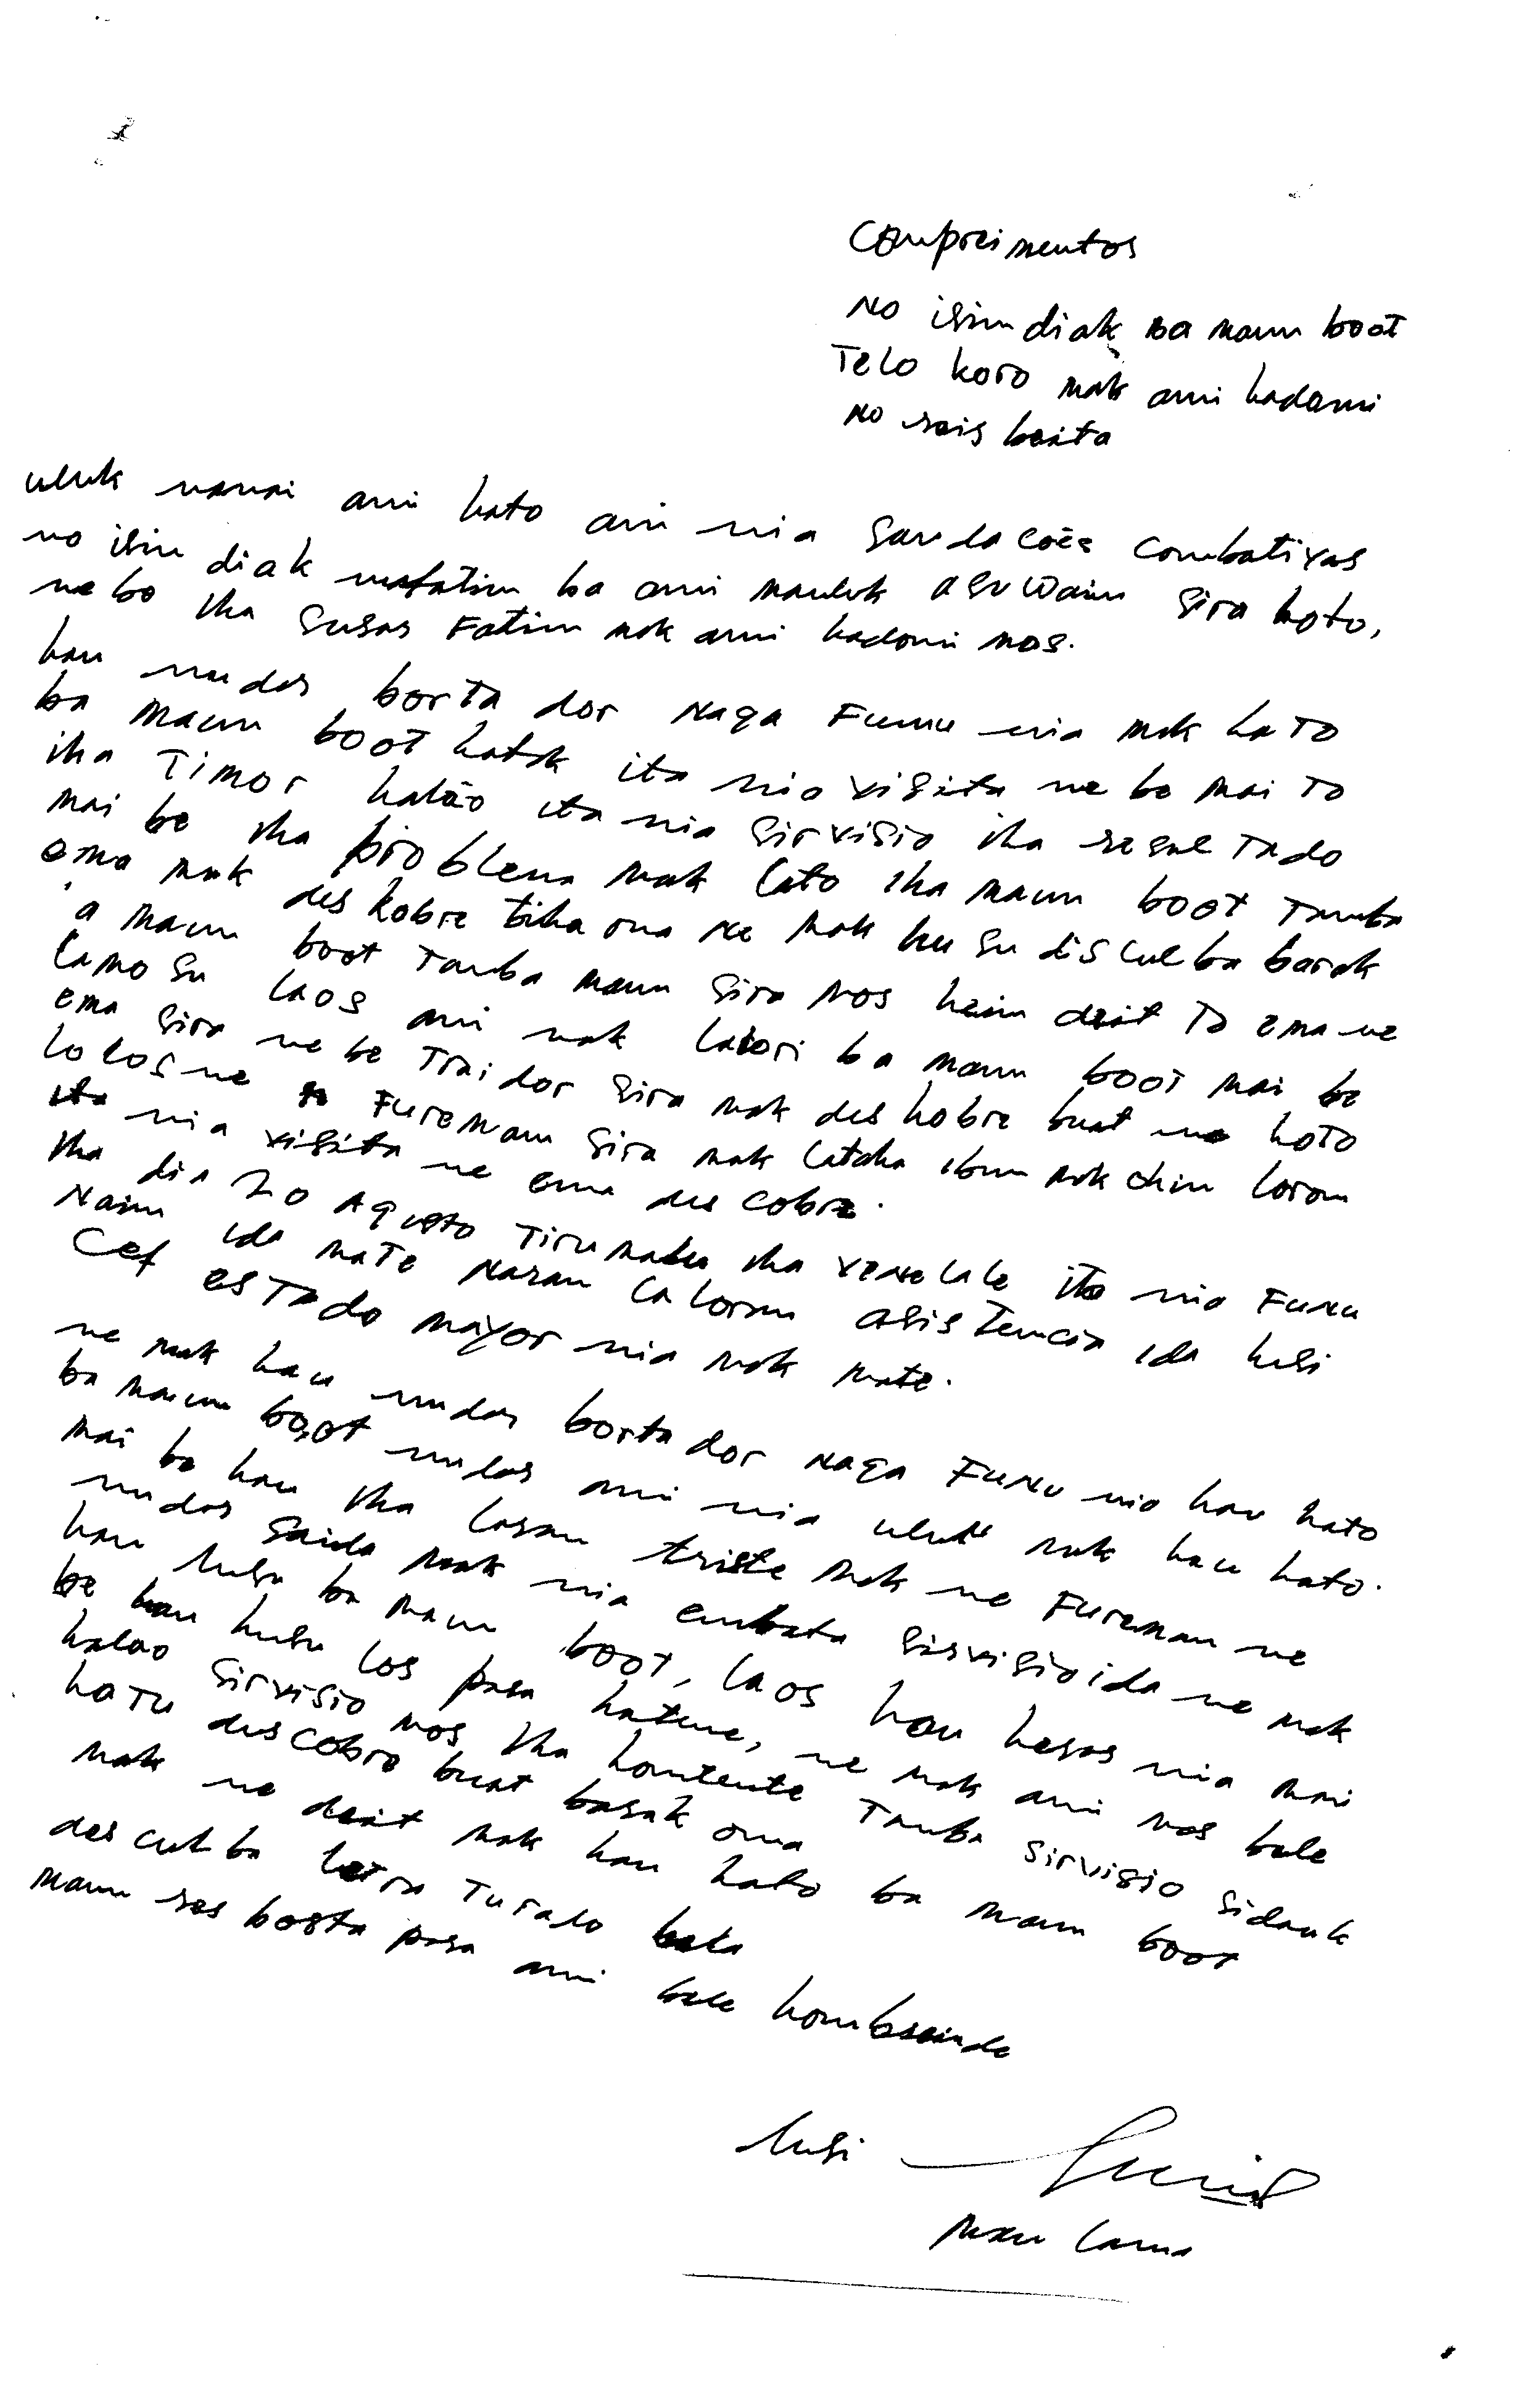 Compreimentos
No isin diak ba maun boot
Telo koro mak ami hadomi
No seis beita
uluk nanai ami hato ami nia Saudacoẽs Combativas
no isin diak nafatin ba ami maluk asuwain Sira hoto,
nebe iha Susar Fatin mak ami hadomi mos.
hau nudar borta dor Naga Funu nia mak hato
ba Maun boot katak ita nia visita ne be mai to
iha Timor halão ita nia Sirvisio iha resul Tado
mai be iha problema mak lato iha maun boot Tamba
ema mak des kobre tiha ona Ne mak husu disculba barak
a maun boot Tamba maun Sira Mos hein deit To ema ne
lamosu laos ami mak lalori ba maun boot mai be
ema Sira ne be Traidor Sira mak des kobre buat ne hoto
lolos ne Fureman Sira mak latoha ibun mak ohin loron
ita nia visita ne ema des cobre.
iha dia 20 Agusto Tiru malu iha Venelale ita nia Funu
Nain ida mate Naran laloran asistencia ida husi
Cef estado mayor nia mak mate.
ne mak hau nudar borta dor Naga Funu nia hau hato
ba maun boot nudar ami nia uluk mak hau hato.
mai be hau iha laran triste mak ne Fureman ne
nudar Saida mak nia embata Sirvisio ida ne mak
hau husu ba maun boot, laos hau hasas nia mai
be hau husu los para hatene, ne mak ami mos bele
halao Sirvisio mos iha kontente Tamba Sirvisio Sidauk
hatu descobre buat barak ona
mak ne deit mak hau hato ba maun boot
des culba letra Turalo bala
maun ses bosta para ami bele kombreinde
husi
Mau lama